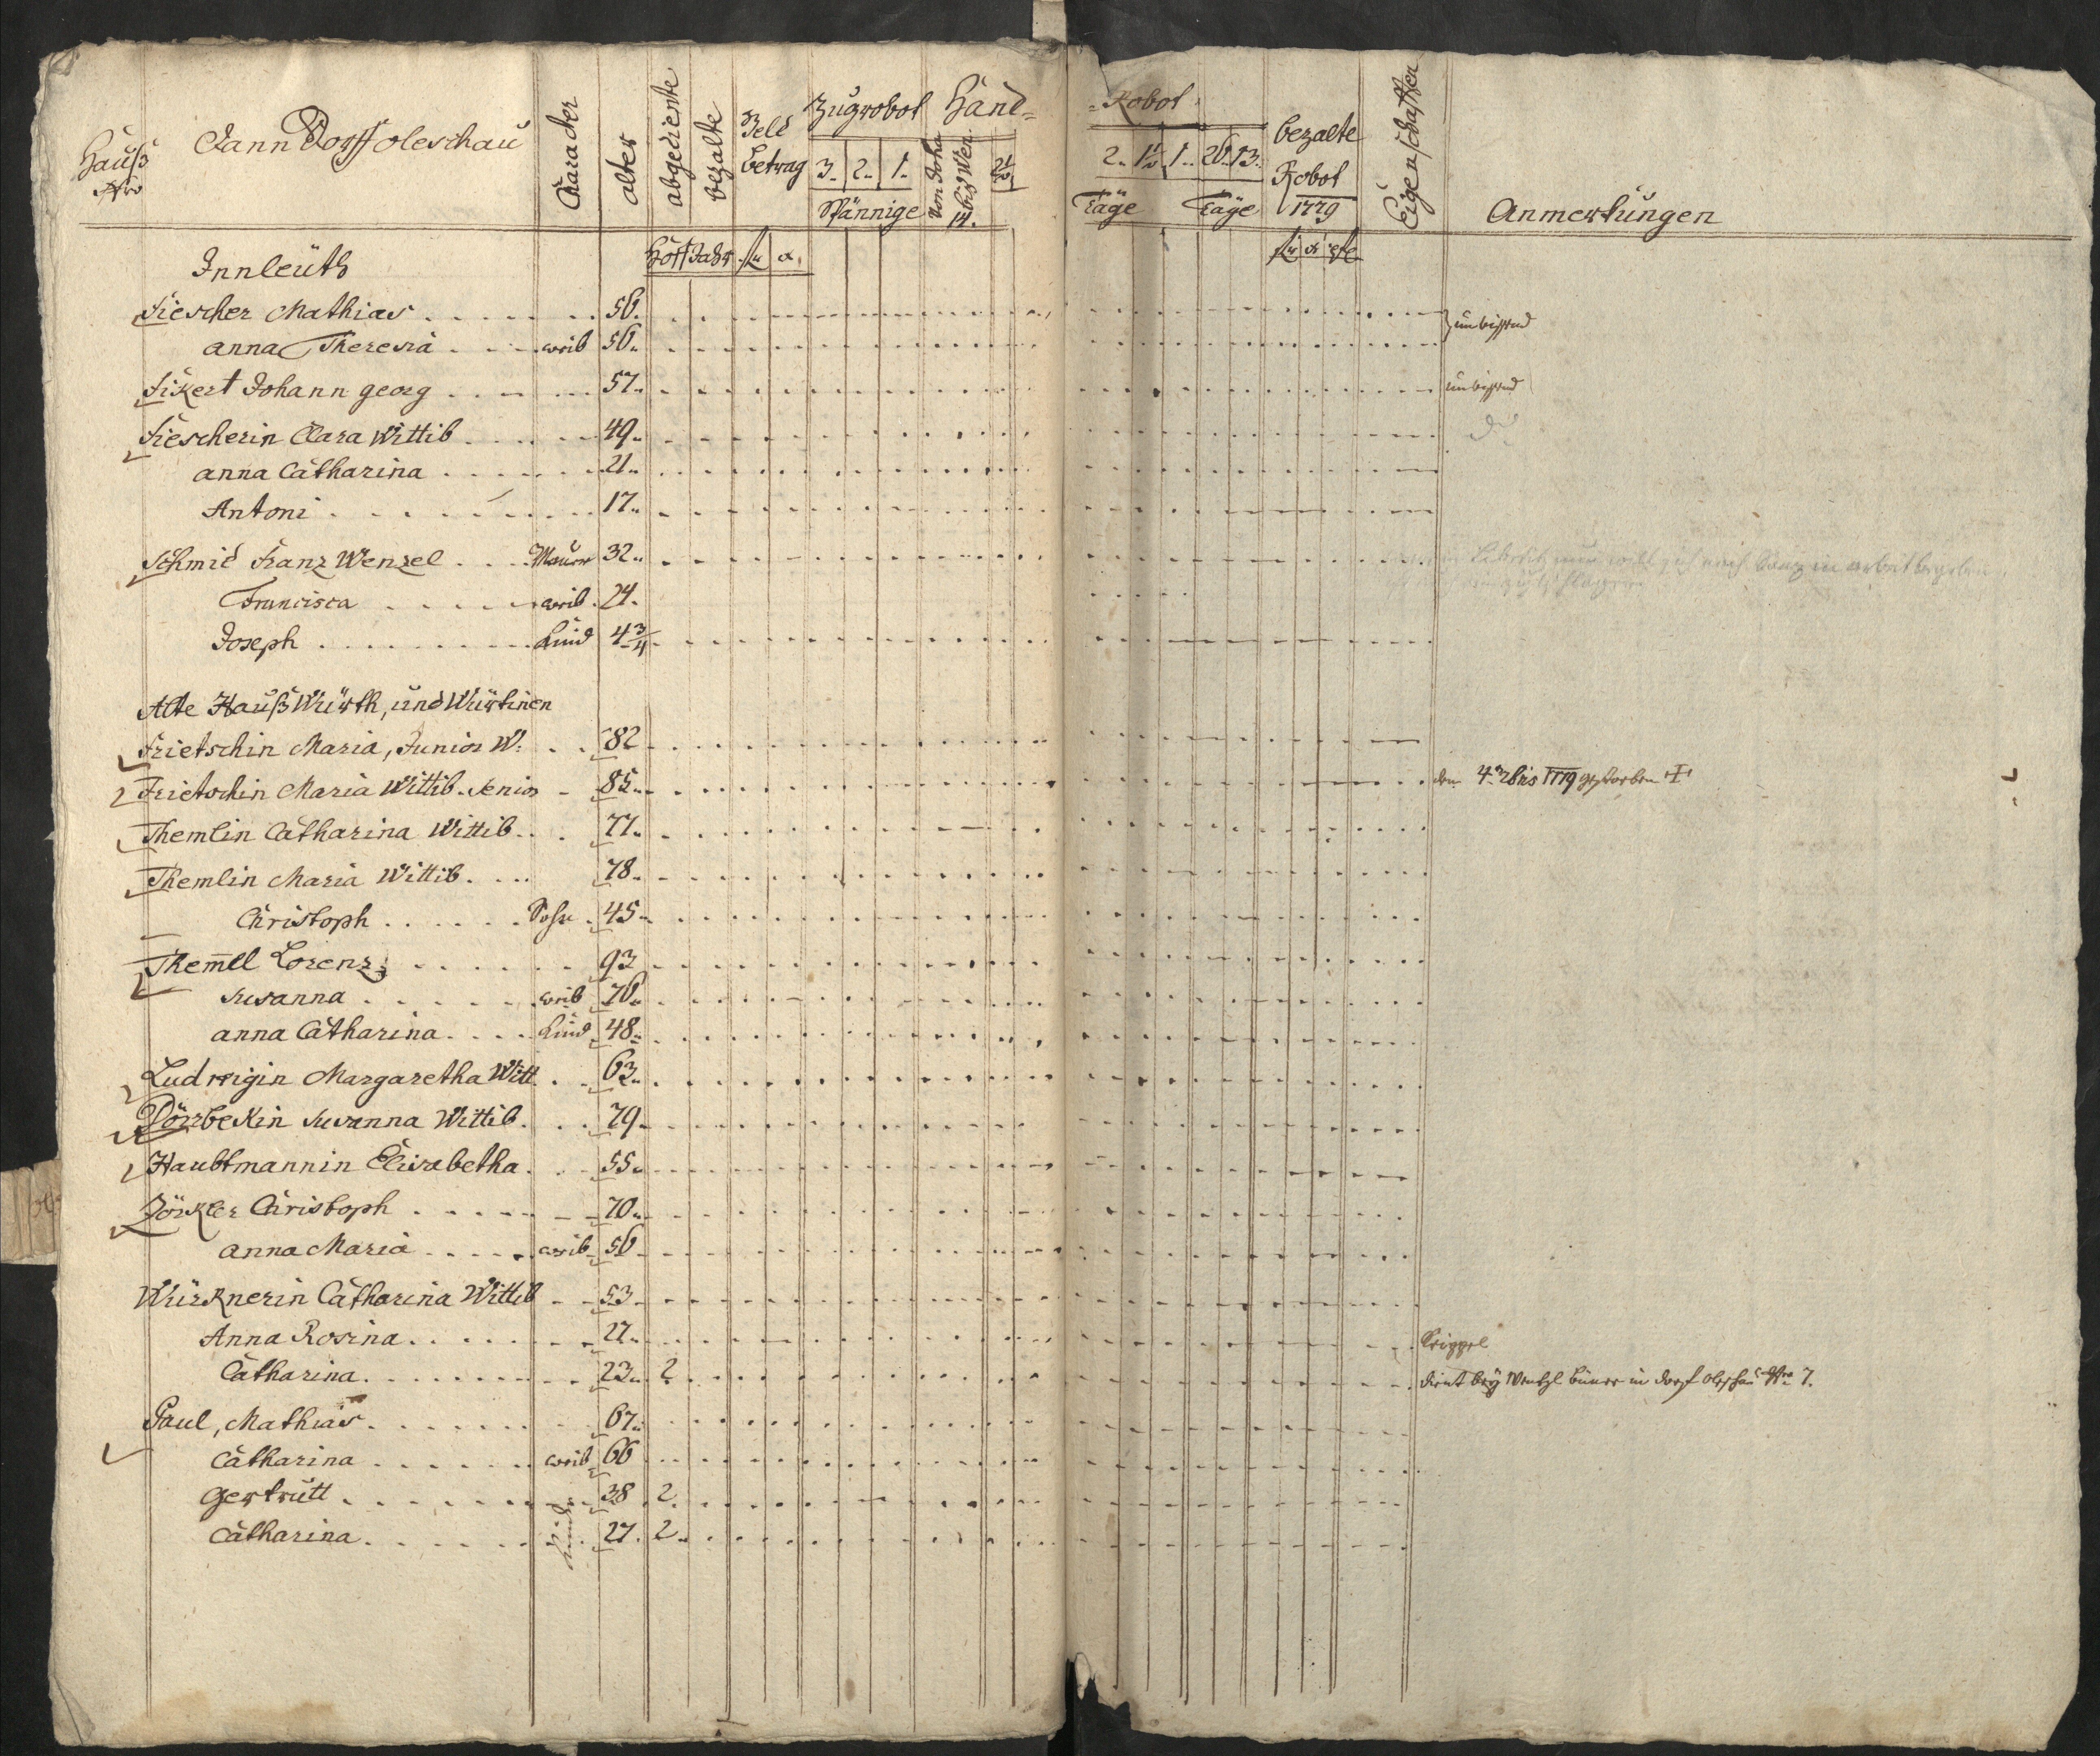 Hauß Nro
Dorf Oleschau
Caracter
alter
abgediente
bezalte
Hoff Jahr
Geld betrag
fl x
Zugrobot
3. 2. 1.
Spännige
Hand=
Von Joha bis Wen
14.
2½
=Robot
2. 1½ 1. 26. 13.
Täge Täge
bezalte Robot 1779
fl x
Eigenschaften
Anmerkungen
Innleüth
Fiescher Mathias 56.
anna Theresia weib 56.
Fikert Johann georg 57.
Fiescherin Clara Wittib 49.
anna Catharina 21.
Antoni 17.
Schmid Franz Wenzel Maurer 32.
in arbeit begeben
Francisca weib 24.
Joseph Kind 4¾
Alte Hauß Würth, und Würtinen
Frietschin Maria, Junior W: 82
Frietschin Maria Wittib. Senior 85. den 4. 1779 gestorben ✝
Themlin Catharina Wittib 77.
Themlin Maria Wittib 78.
Christoph Sohn 45
Them̅el Lorenz 93
Susanna weib 76.
anna Catharina Kind 48.
Ludwigin Margaretha Witt. 63.
Dörrbekin Susanna Wittib 79.
Haubtmannin Elisabetha 55.
Zörkler Christoph 70.
anna Maria weib 56
Würknerin Catharina Wittib 53
Anna Rosina 27. Krippel
Catharina 23. 2 dient bey Wentzl in dorf Olschau Nro 7.
Paul, Mathias 67.
Catharina weib 66
Gertrutt 38 2.
Kind
Catharina 27. 2